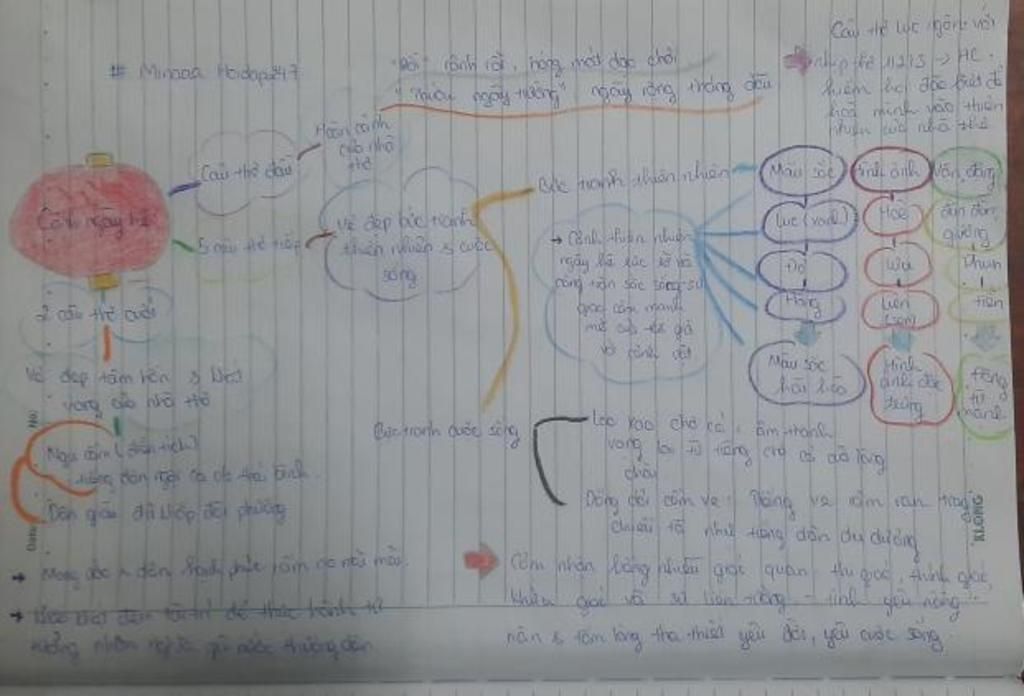 # Minaaa Hoidap247
"Rồi" rảnh rỗi, hóng mát dạo chơi
"Thuở ngày trường" ngày rộng tháng dài
Câu thơ lục ngôn với
nhịp thơ 1/2/3 → HC
hiếm hoi đặc biệt để
hoà mình vào thiên
nhiên của nhà thơ
Cảnh ngày hè
Câu thơ đầu
Hoàn cảnh
của nhà
thơ
5 câu thơ tiếp
Vẻ đẹp bức tranh
thiên nhiên & cuộc
sống
Bức tranh thiên nhiên
→ Cảnh thiên nhiên
ngày hè rực rỡ và
căng tràn sức sống
giác
mẽ
cảnh vật
Màu sắc
Lục (xanh)
Đỏ
Hồng
Màu sắc
hài hoà
Hình ảnh
Hoè
Lựu
Liên
(sen)
Hình
ảnh đặc
trưng
Vận động
đùn đùn
giương
Phun
tiễn
Động
từ
mạnh
2 câu thơ cuối
Vẻ đẹp tâm hồn & khát
vọng của nhà thơ
Ngu cầm (điển tích)
tiếng đàn ngợi ca thái bình.
Dân giàu đủ khắp đòi phương
Bức tranh cuộc sống
Lao xao chợ cá: âm thanh
vọng lại từ tiếng chợ cá làng
chài
Dắng dỏi cầm ve: tiếng ve râm ran trong
chiều tà như tiếng đàn du dương
→ Mong ước dân hạnh phúc ấm no mọi nhà.
→ Khao khát đem tài trí để thực hành tư
tưởng nhân nghĩa yêu nước thương dân
Cảm nhận bằng nhiều giác quan: thị giác, thính giác,
khứu giác và sự liên tưởng - tình yêu nồng
nàn & tấm lòng tha thiết yêu đời, yêu cuộc sống.
KLONG